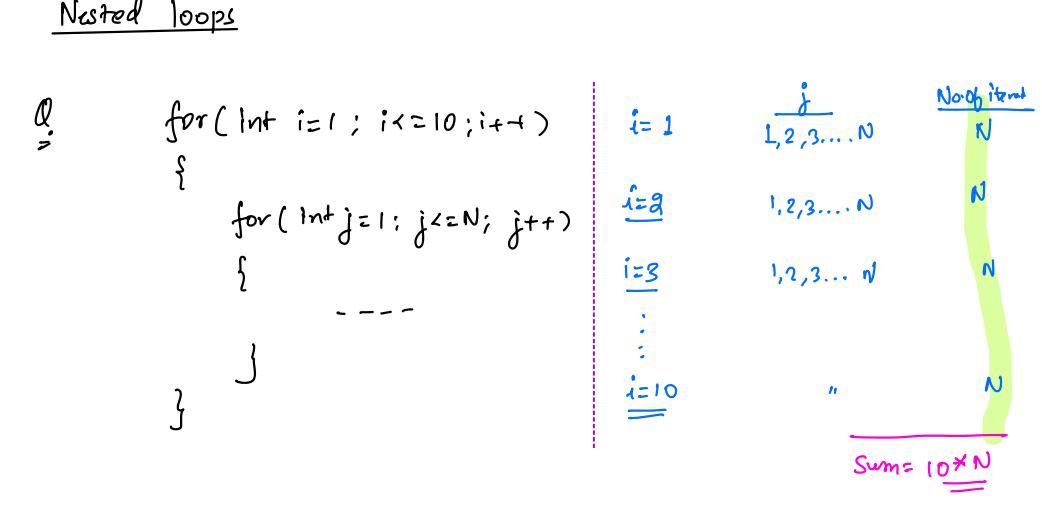 Nested loops
Q. for( int i=1 ; i<=10 ; i++ )
{
for( int j=1; j<=N; j++)
{
----
}
}
j No. of iterat
i= 1 1,2,3.... N N
i=2 1,2,3.... N N
i=3 1,2,3... N N
:
:
i=10 " N
Sum= 10*N